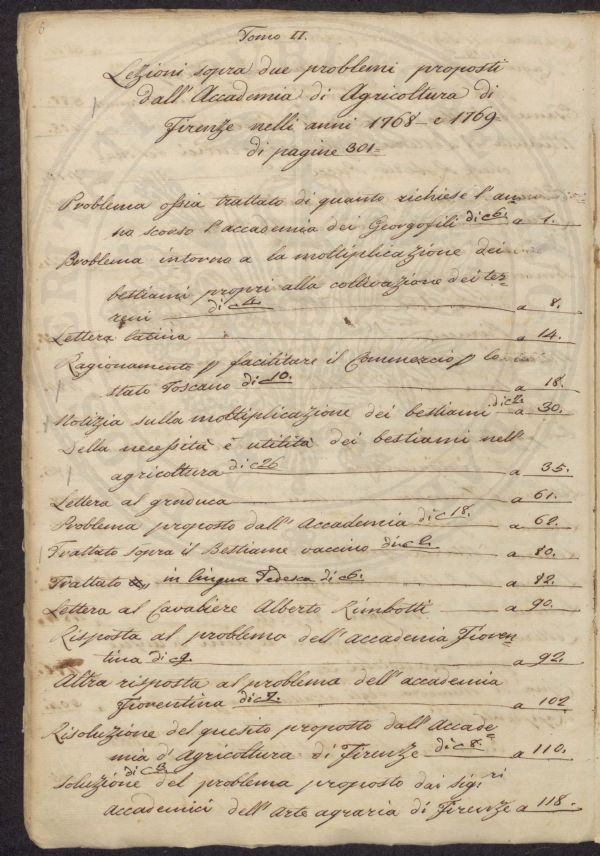 6
Tomo II.
Lezioni sopra due problemi proposti
dall'Accademia di Agricoltura di
Firenze nelli anni 1768 e 1769
di pagine 301=
Problema ossia trattato di quanto richiese l'an=
no scorso l'accademia dei Georgofili di c 6. a 1.
Problema intorno a la moltiplicazione dei
bestiami propri alla coltivazione dei ter=
reni di c 4. a 8.
Lettera latina a 14.
Ragionamento p facilitare il Commercio p lo
stato Toscano di c 10. a 18.
Notizia sulla moltiplicazione dei bestiami di c 2. a 30.
Della necessità è utilità dei bestiami nell'
agricoltura di c 26 a 35.
Lettera al granduca a 61.
Problema proposto dall'Accademia di c 18. a 62.
Trattato sopra il Bestiame vaccino di c 2. a 80.
Trattato in lingua Tedesca di c 6. a 82.
Lettera al Cavaliere Alberto Rimbotti a 90.
Risposta al problema dell'accademia Fioren=
tina di c 9. a 92.
Altra risposta al problema dell'accademia
Fiorentina di c 7. a 102
Risoluzione del quesito proposto dall'Accade=
mia d'Agricoltura di Firenze di c 8. a 110.
Soluzione del problema proposto dai sigri
di c
Accademici dell'Arte agraria di Firenze a 118.